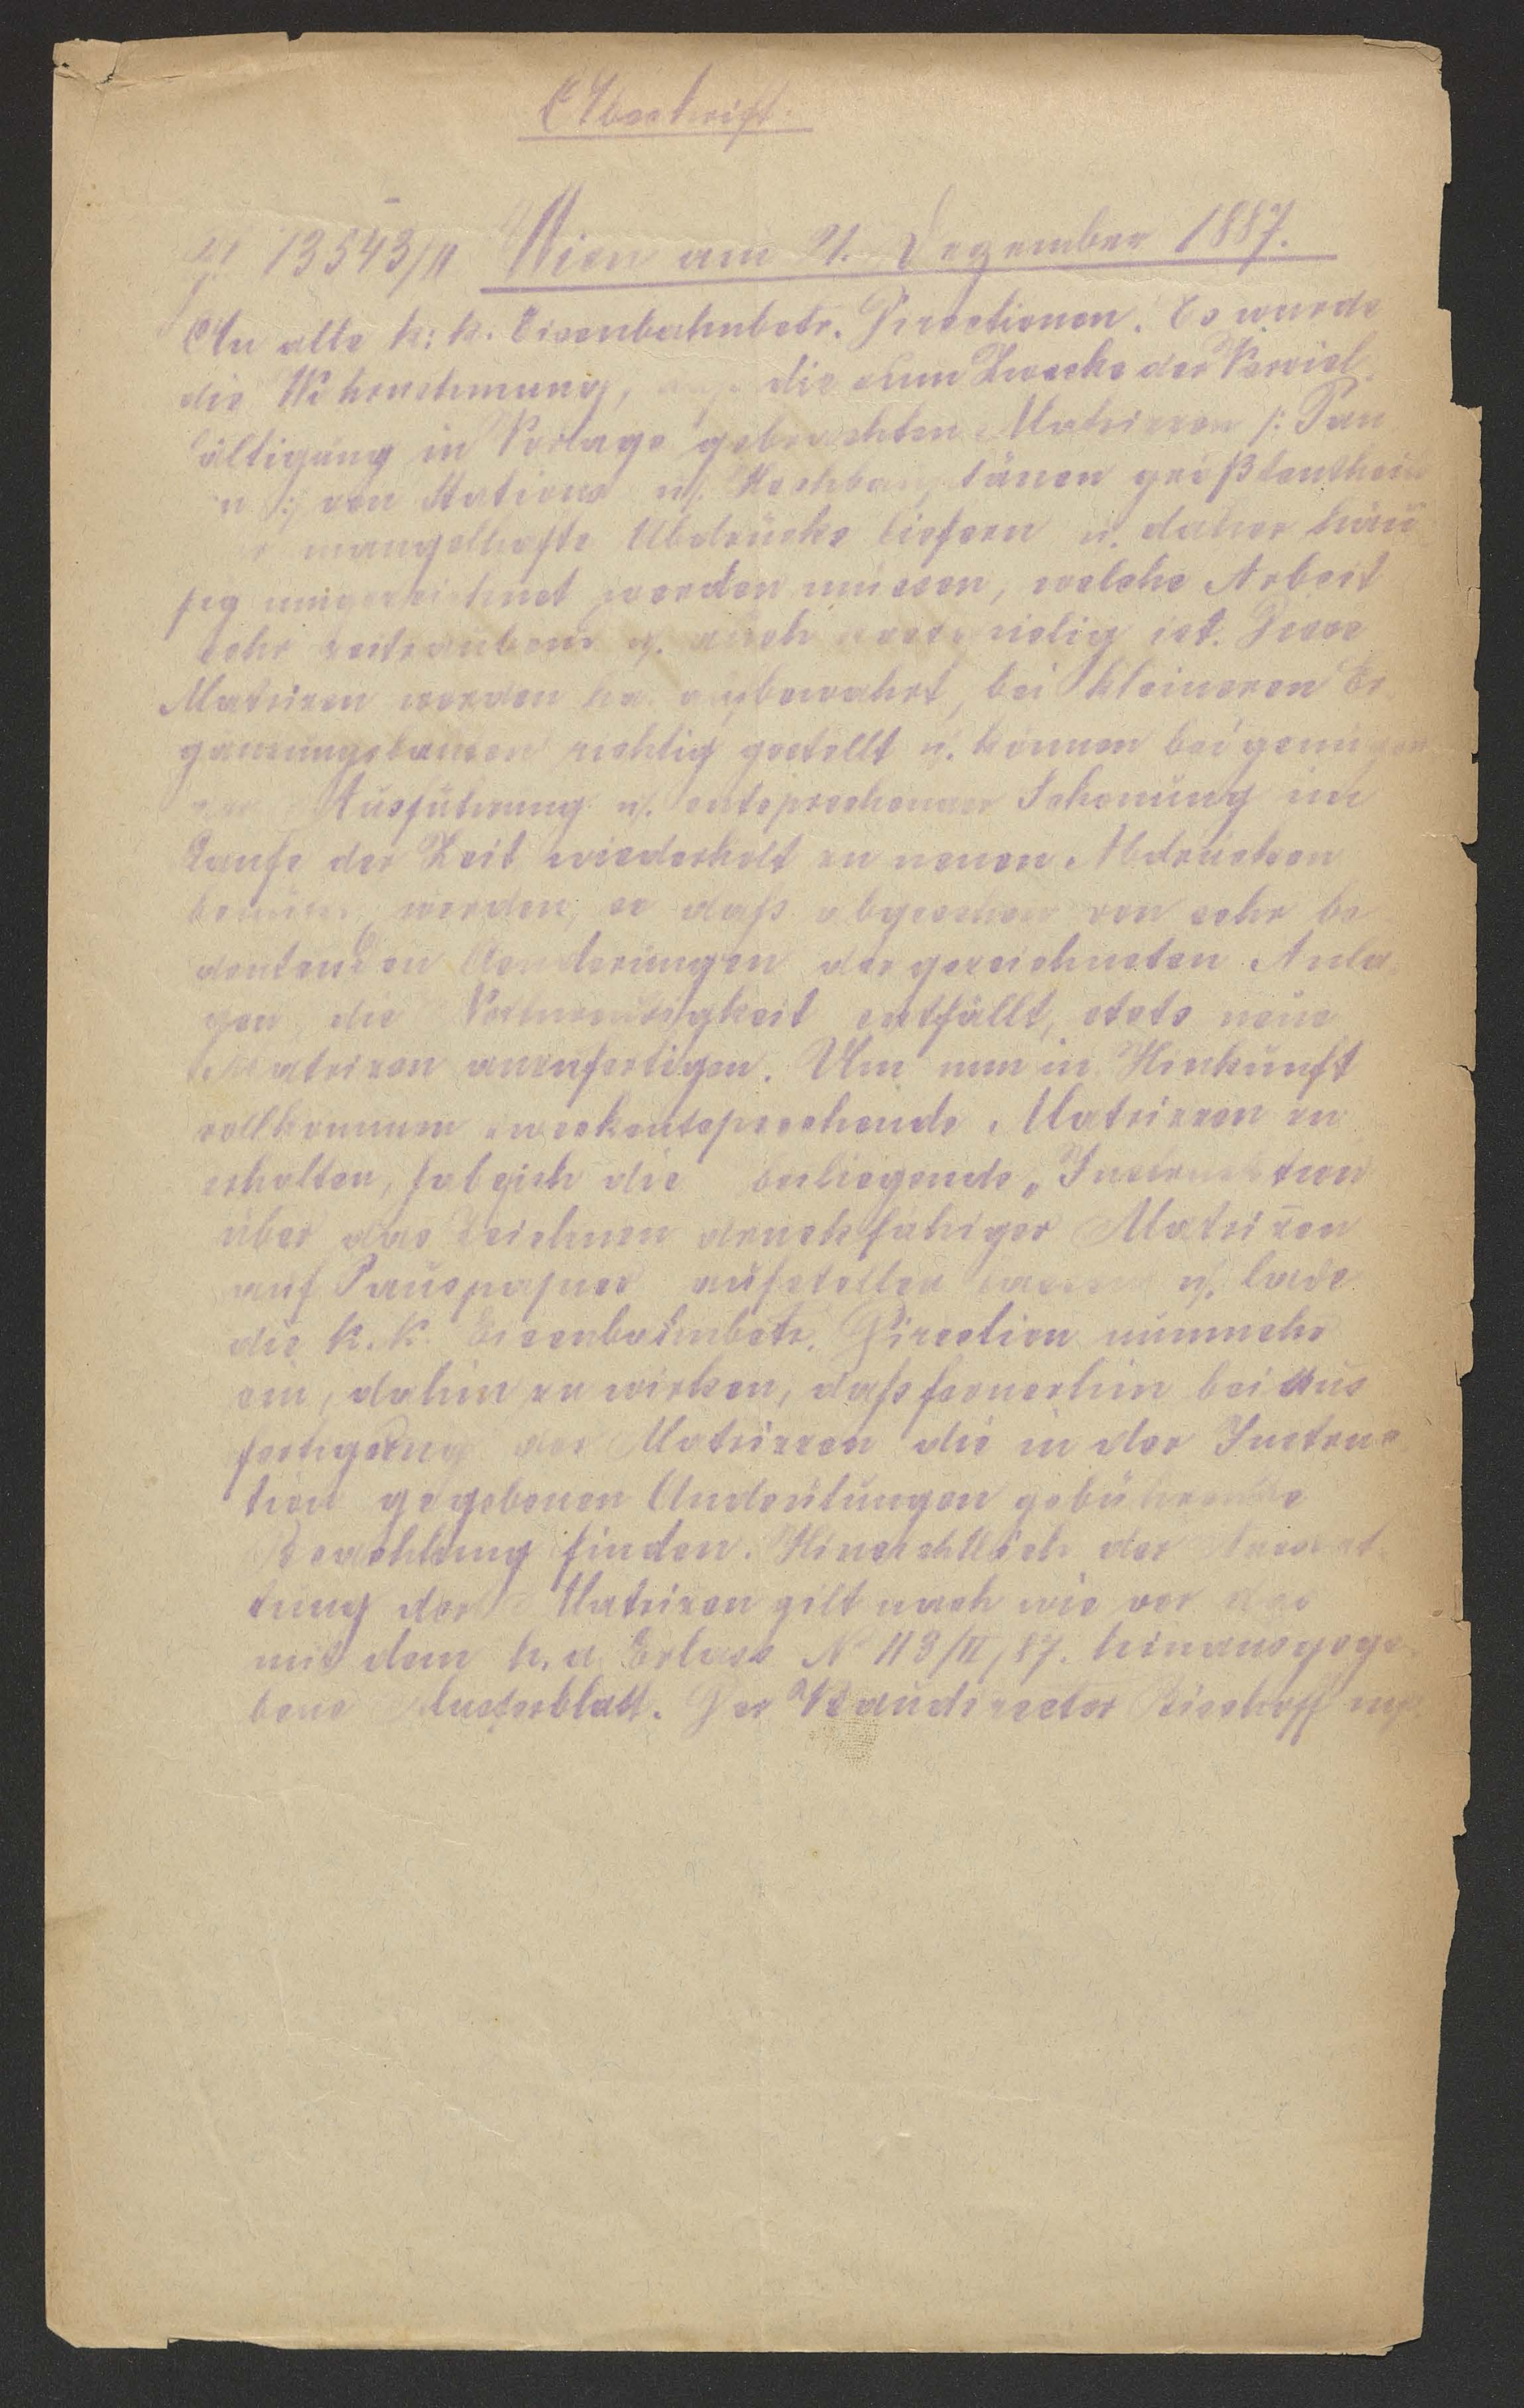 Abschrift.
13543/II Wien am 21. Dezember 1887.
An alle k. k. Eisenbahnbetr. Directionen. Es wurde
die Wahrnehmung, die zum Zwecke der Verviel
fältigung in Vorlage gebrachten Matrizzen /: Pau
n :/ von Stations u. Hochbauplänen größtentheils
mangelhafte Abdrücke liefern u. daher häu
fig umgezeichnet werden müssen, welche Arbeit
sehr zeitraubend u. auch kostspielig ist. Diese
Matrizen werden ha. aufbewahrt, bei kleineren Er
gänzungsbauten richtig gestellt u. können bei genügen
der Ausführung u. entsprechender Schonung im
Laufe der Zeit wiederholt zu neuen Abdrücken
benützt werden, so daß abgesehen von sehr be
deutenden Aenderungen der gezeichneten Anla
gen die Nothwendigkeit entfällt, stets neue
Matrizen anzufertigen. Um nun in Hinkunft
vollkommen zweckentsprechende Matrizzen zu
erhalten, habe ich die beiliegende „Instruktion
über das Zeichnen druckfähiger Matrizen
auf Pauspapier aufstellen lassen u. lade
die k. k. Eisenbahnbetr. Direction nunmehr
ein, dahin zu wirken, daß fernerhin bei Aus
fertigung der Matrizzen die in der Instruc
tion gegebenen Andeutungen gebührende
Beachtung finden. Hinsichtlich der Ausstat
tung der Matrizen gilt nach wie vor das
mit dem h. a. Erlass № 113/II/87. hinausgege
bene Musterblatt. Der Baudirector Bischoff mp.